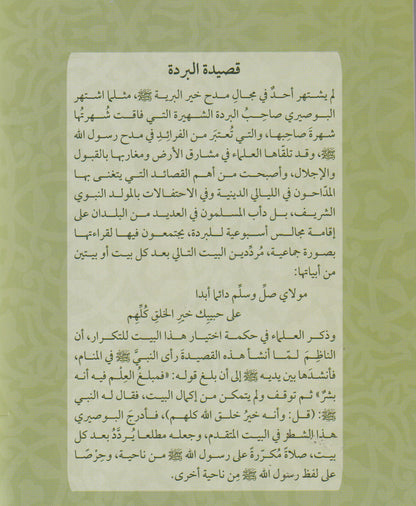 قصيدة البردة
لم يشتهر أحدٌ في مجالِ مدح خير البرية ﷺ، مثلما اشتهر
البوصيري صاحِبُ البردة الشهيرة التي فاقت شُهرتُها
شهرةَ صاحِبها، والتي تُعتبَر من الفرائدِ في مدح رسول الله
ﷺ، وقد تلقَّاها العلماء في مشارق الأرض ومغاربها بالقبول
والإجلال، وأصبحت من أهم القصائد التي يتغنى بها
المدّاحون في الليالي الدينية وفي الاحتفالات بالمولد النبوي
الشريف، بل دأب المسلمون في العديد من البلدان على
إقامة مجالس أسبوعية للبردة، يجتمعون فيها لقراءتها
بصورة جماعية، مُردِّدين البيت التالي بعد كل بيت أو بيتين
من أبياتها:
مولاي صلِّ وسلِّم دائما أبدا
على حبيبِك خيرِ الخلقِ كُلِّهِم
وذكر العلماء في حكمة اختيار هذا البيت للتكرار، أن
الناظِمَ لمّا أنشأ هذه القصيدةَ رأى النبيَّ ﷺ في المنام،
فأنشدَها بين يديه ﷺ إلى أن بلغ قوله: «فمبلغُ العِلْم فيه أنه
بشرٌ» ثم توقف ولم يتمكن من إكمال البيت، فقال له النبي
ﷺ: (قل: وأنه خيرُ خلق الله كلهم)، فأدرجَ البوصيري
هذا الشطر في البيت المتقدم، وجعله مطلعا يُردَّدُ بعد كل
بيت، صلاةً مُكرّرةً على رسول الله ﷺ من ناحية، وحِرْصًا
على لفظ رسول الله ﷺ مِن ناحية أخرى.